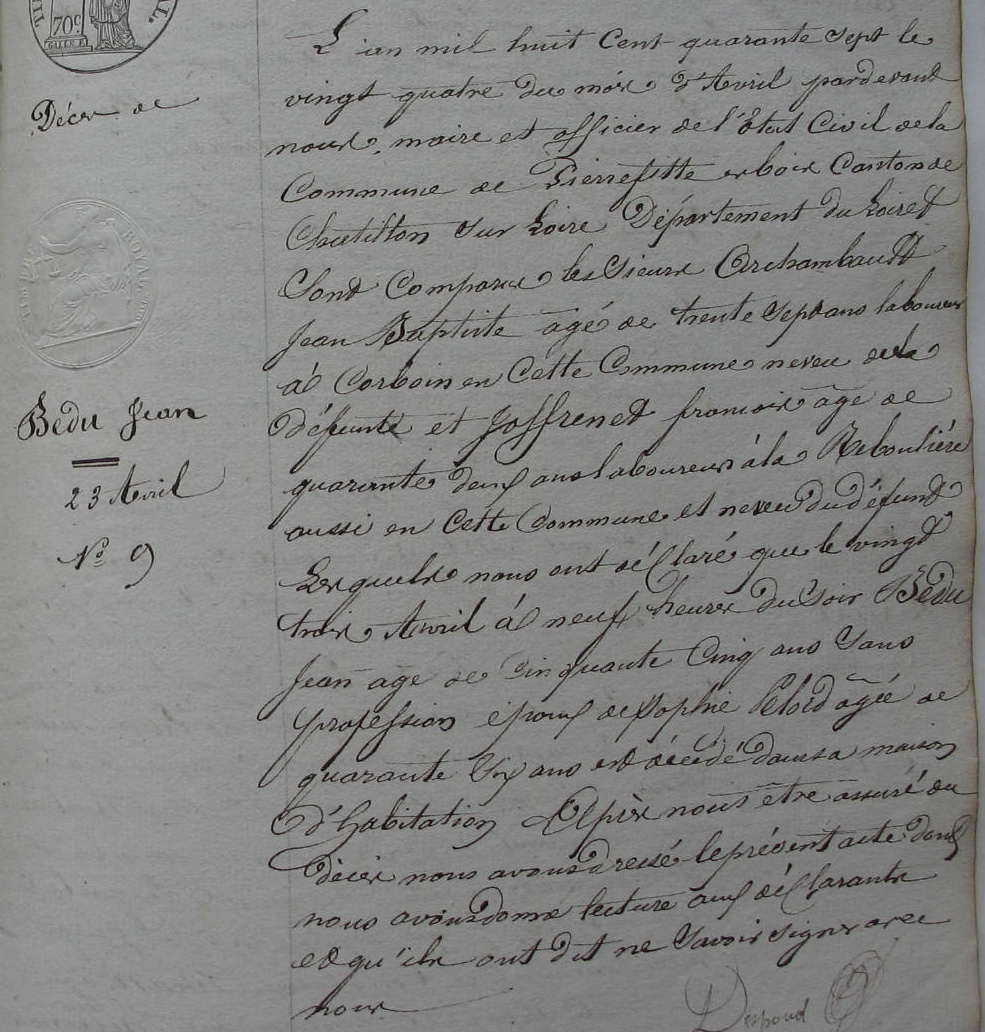 70c
Décès de
Bedu Jean
23 Avril
No 9
L'an mil huit Cent quarante Sept le
vingt quatre du mois d'Avril pardevant
nous, maire et officier de l'Etat Civil de la
Commune de Pierrefitte es bois Canton de
Chatillon Sur Loire Département du Loiret
Sont Comparus les Sieurs Archambault
Jean Baptiste agé de trente Sept ans laboureur
à Corboin en Cette Commune neveu de la
défunte et Joffrenet francois age de
quarante deux ans laboureur à la Reboulière
aussi en Cette Commune et neveu du défund
Lesquels nous ont déClaré que le vingt
trois Avril à neuf heures du Soir Bedu
Jean age de Cinquante Cinq ans Sans
profession époux de Sophie agée de
quarante Six ans est décédé dans sa maison
d'habitation Après nous être assuré du
décès nous avons dressé le présent acte dont
nous avons donné lecture aux déClarants
et qu'ils ont dit ne Savoir Signer avec
nous